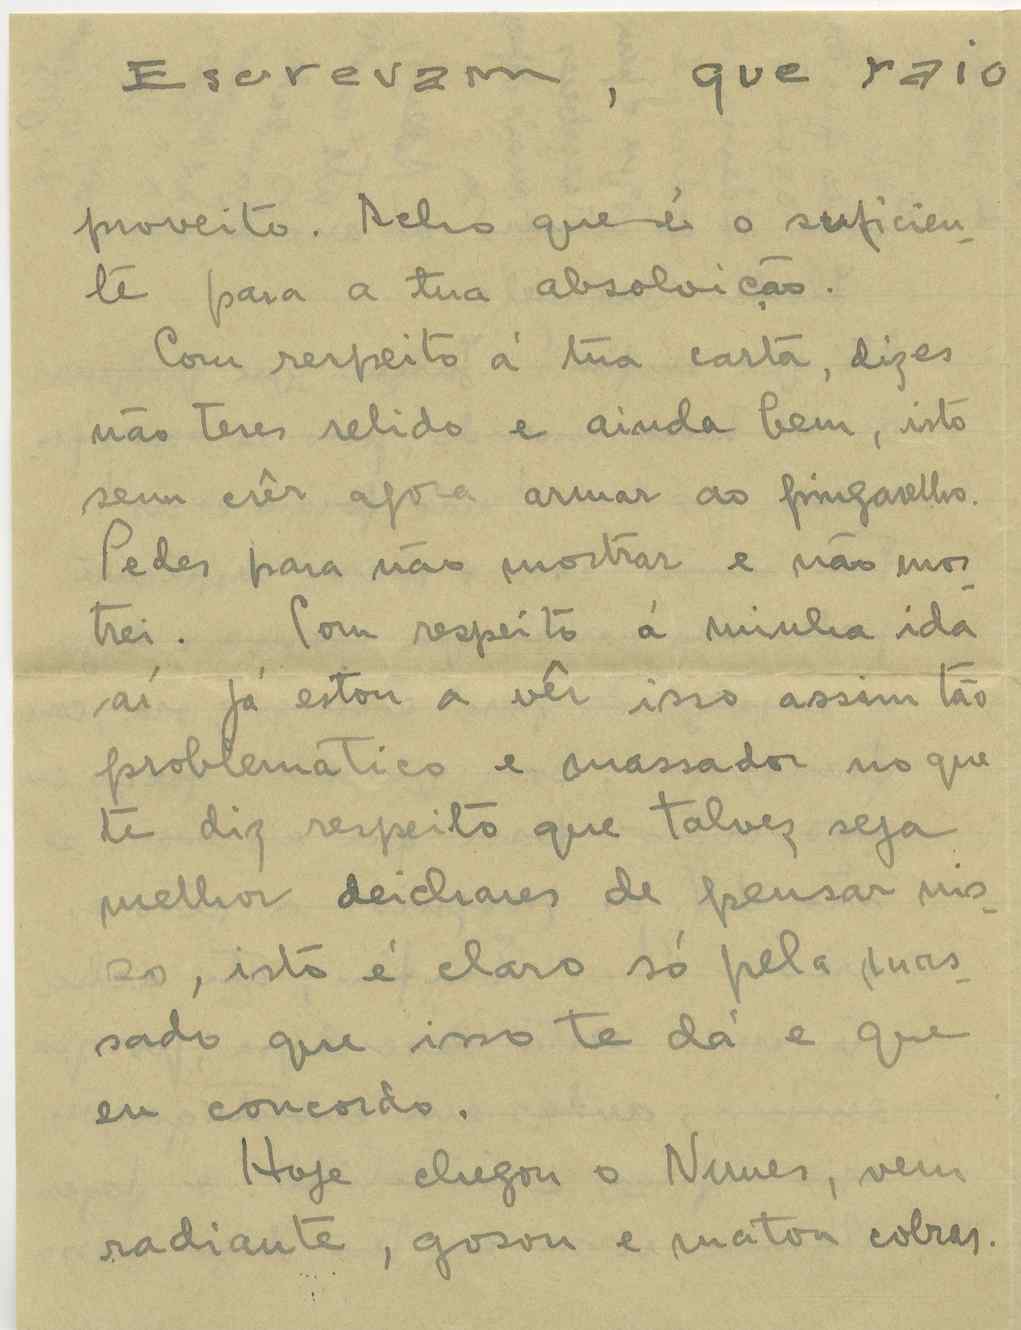 Escrevam, que raio
proveito. Acho que é o suficien-
te para a tua absolvição.
Com respeito á tua carta, dizes
não teres relido e ainda bem, isto
sem crêr agora armar ao pingarelho.
Pedes para não mostrar e não mos-
trei. Com respeito á minha ida
aí já estou a vêr isso assim tão
problemático e massador no que
te diz respeito que talvez seja
melhor deichares de pensar nis-
so, isto é claro só pela mas-
sado que isso te dá e que
eu concordo.
Hoje chegou o Nunes, vem
radiante, gosou e matou cobras.